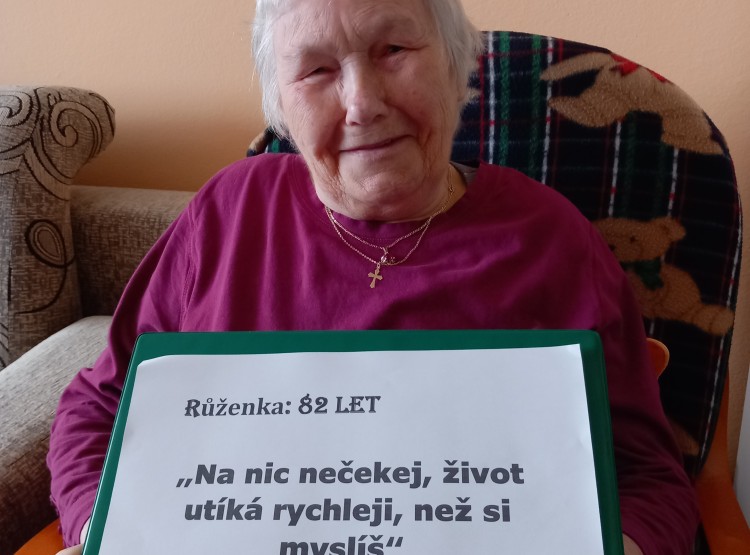 Růženka: 82 LET
„Na nic nečekej, život
utíká rychleji, než si
myslíš“